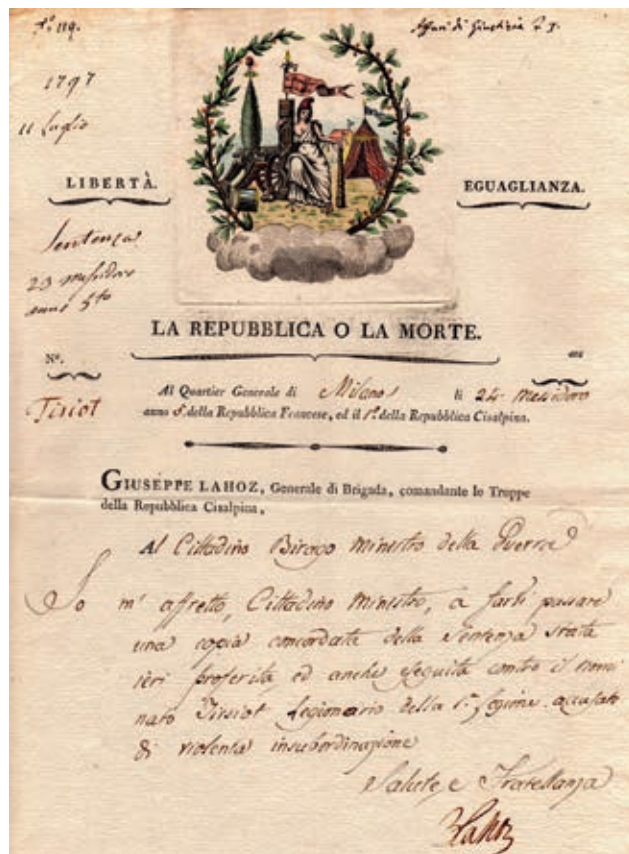 N.º 119.
Affari di Giustizia P. I.
1797
11 Luglio
LIBERTÀ.
EGUAGLIANZA.
Sentenza
23 messidoro
anno 5to
LA REPUBBLICA O LA MORTE.
Nº.
Tisiot
Al Quartier Generale di Milano li 24 Messidoro
anno 5.º della Repubblica Francese, ed il 1.º della Repubblica Cisalpina.
GIUSEPPE LAHOZ, Generale di Brigada, comandante le Truppe
della Repubblica Cisalpina,
Al Cittadino Birago Ministro della Guerra
Io m' affretto, Cittadino Ministro, a farti passare
una copia concordata della Sentenza stata
ieri proferita, ed anche eseguita contro il nomi
nato Tirsiot Legionario della 1.ª Legione accusato
di violenta insubordinazione
Salute, e Fratellanza
LaHoz